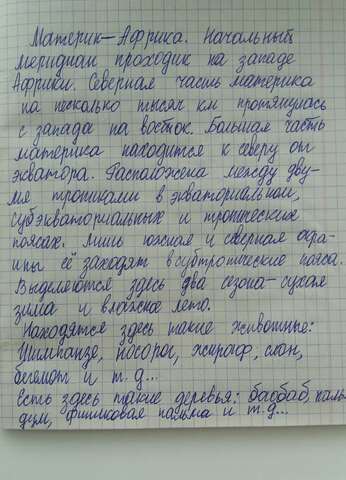 Материк-Африка. Начальный
меридиан проходит на западе
Африки. Северная часть материка
на несколько тысяч км протянулась
с запада на восток. Большая часть
материка находится к северу от
экватора. Расположена между дву-
мя тропиками в экваториальном,
субэкваториальных и тропических
поясах. Лишь южная и северная окра-
ины её заходят в субтропические пояса.
Выделяются здесь два сезона-сухая
зима и влажное лето.
Находятся здесь такие животные:
Шимпанзе, носорог, жираф, слон,
бегемот и т.д...
Есть здесь такие деревья: баобаб, каль-
дум, финиковая пальма и т.д...